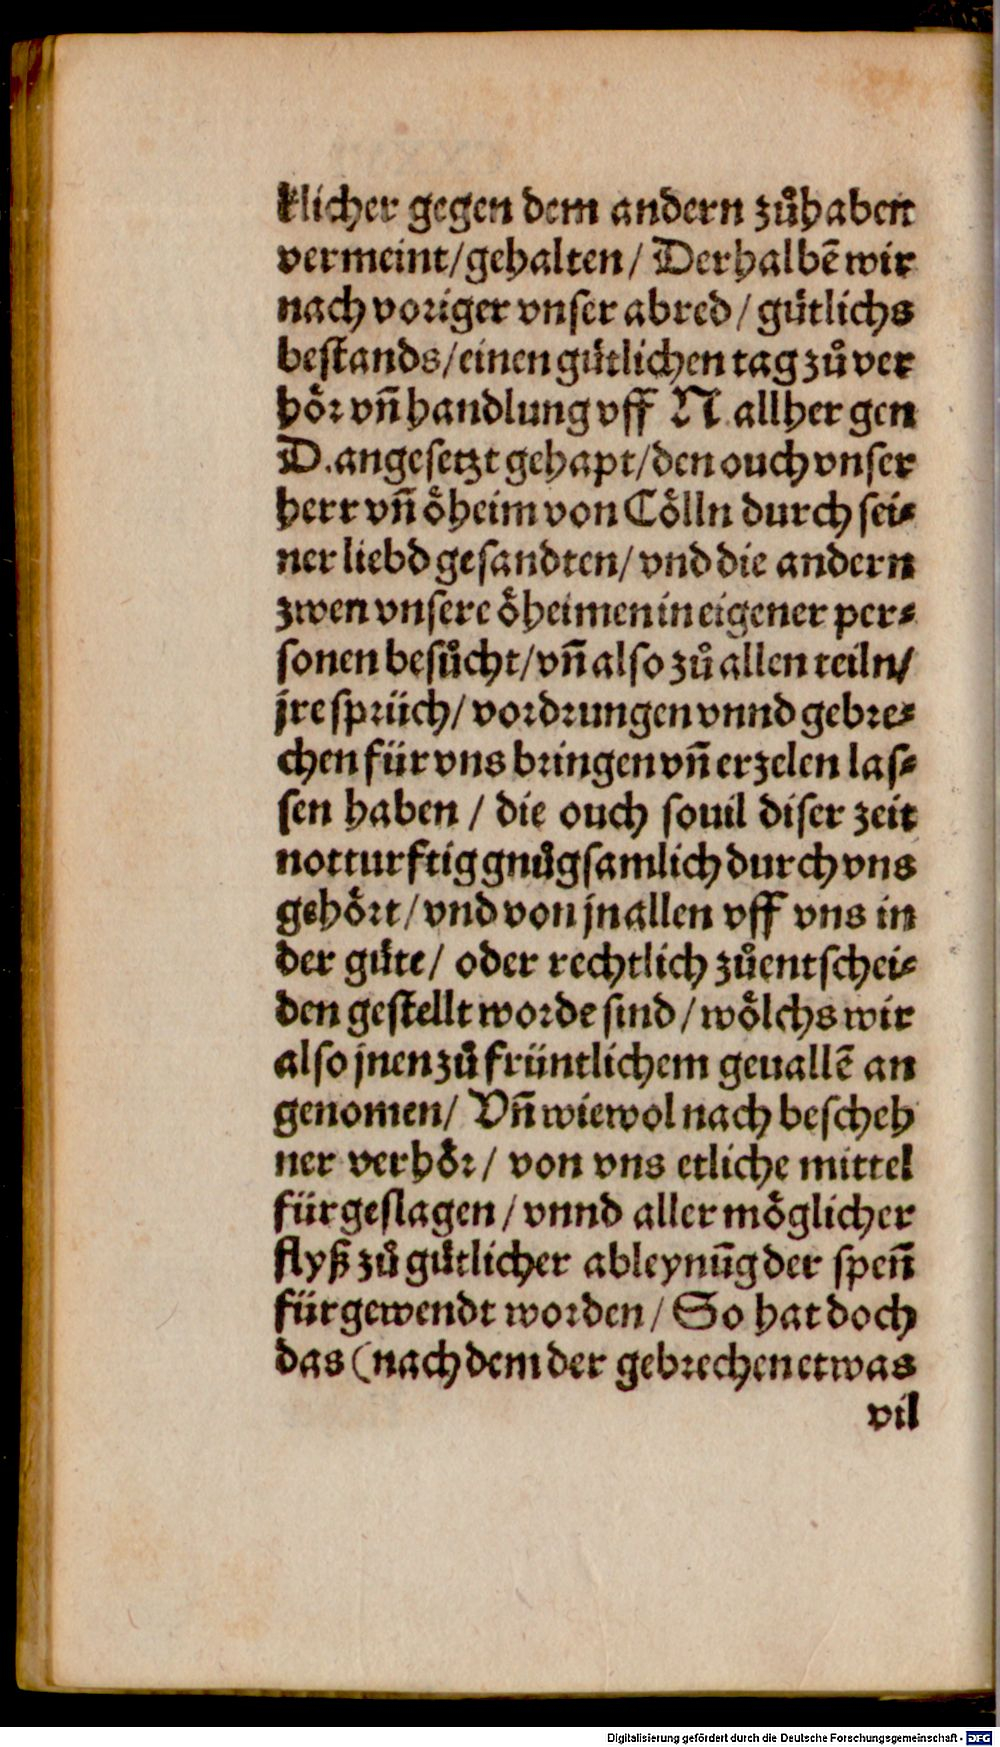 klicher gegen dem andern zůhaben
vermeint/gehalten/ Derhalbē wir
nach voriger vnser abred/ gütlichs
bestands/einen gütlichen tag zů ver
hör vn̄ handlung vff N allher gen
D. angesetzt gehapt/den ouch vnser
herr vn̄ öheim von Cölln durch sei⸗
ner liebd gesandten/ vnd die andern
zwen vnsere öheimen in eigener per⸗
sonen besůcht/vn̄ also zů allen teiln/
jre sprüch/ vordrungen vnnd gebre⸗
chen für vns bringen vn̄ erzelen las⸗
sen haben / die ouch souil diser zeit
notturftig gnůgsamlich durch vns
gehört/ vnd von jn allen vff vns in
der güte/ oder rechtlich zůentschei⸗
den gestellt worde sind/ wölchs wir
also jnen zů früntlichem geuallē an
genomen/ Vn̄ wiewol nach bescheh
ner verhör/ von vns etliche mittel
fürgeslagen/ vnnd aller möglicher
flyß zů gütlicher ableynūg der spen̄
fürgewendt worden/ So hat doch
das (nach dem der gebrechen etwas
vil
Digitalisierung gefördert durch die Deutsche Forschungsgemeinschaft - DFG